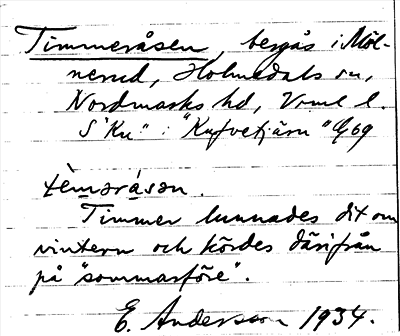 Timmeråsen, bergås i Möl-
nerud, Holmedals sn,
Nordmarks hd, Vrml l.
S "Ku" i "Kufvetjärn"
tèmәrásәn.
Timmer lunnades dit om
vintern och kördes därifrån
på "sommarföre".
E. Andersson 1934.